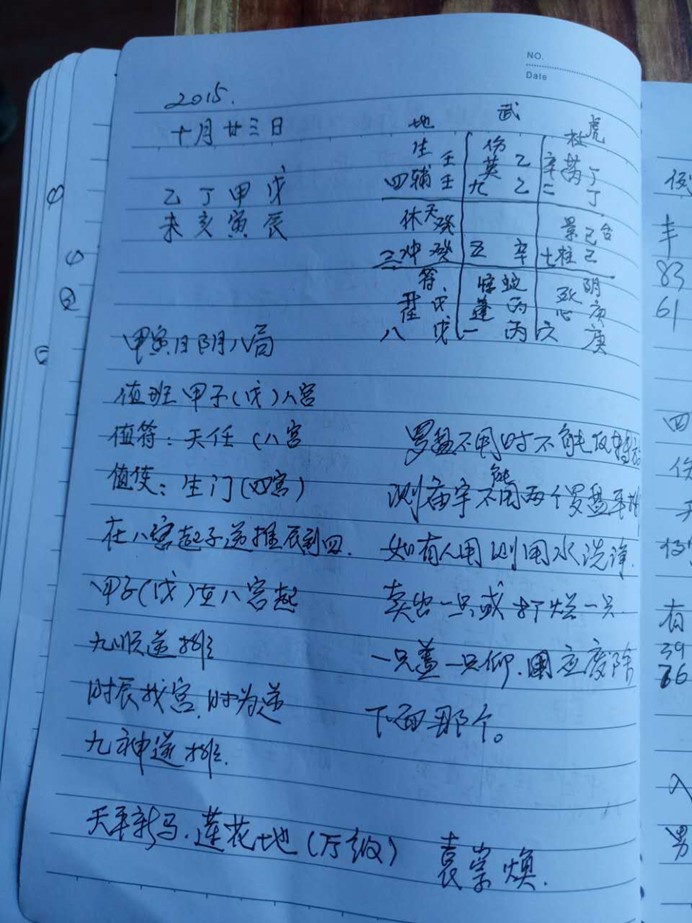 NO.
Date
2015.
十月廿三日
乙丁甲戊
未亥寅辰
地 武 虎
生壬 伤 杜
英乙 辛芮丁
四辅壬 九乙 二丁
休天癸 景己合
三冲癸 五辛 七柱己
符 蛇 阴
任戊 蓬丙 死心庚
八戊 一丙 六庚
甲寅日阴八局
值班甲子(戊)八宫
值符:天任(八宫
值使:生门(四宫)
在八宫起子逆推辰到四.
甲子(戊)在八宫起
九顺逆排
时辰找宫,时为逆
九神逆排.
罗盘不用时不能
测庙宇不能用两个罗盘平排
如有人用则用水洗净.
卖出一只或打烂一只
一只盖一只仰.用应废除
下面那个。
天平新马.莲花地(万级)
袁崇焕.
丰
83
61
四
有
39
入
男